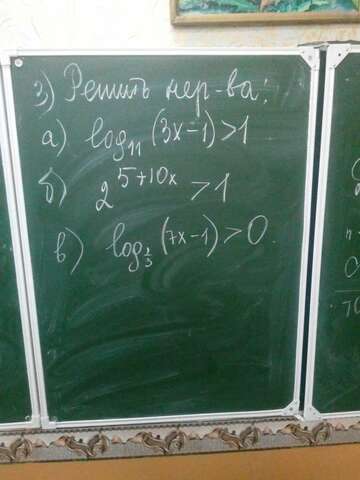 3) Решить нер-ва:
а) log₁₁ (3x-1)>1
б) 2^(5+10x) >1
в) log_(1/3) (7x-1)>0.